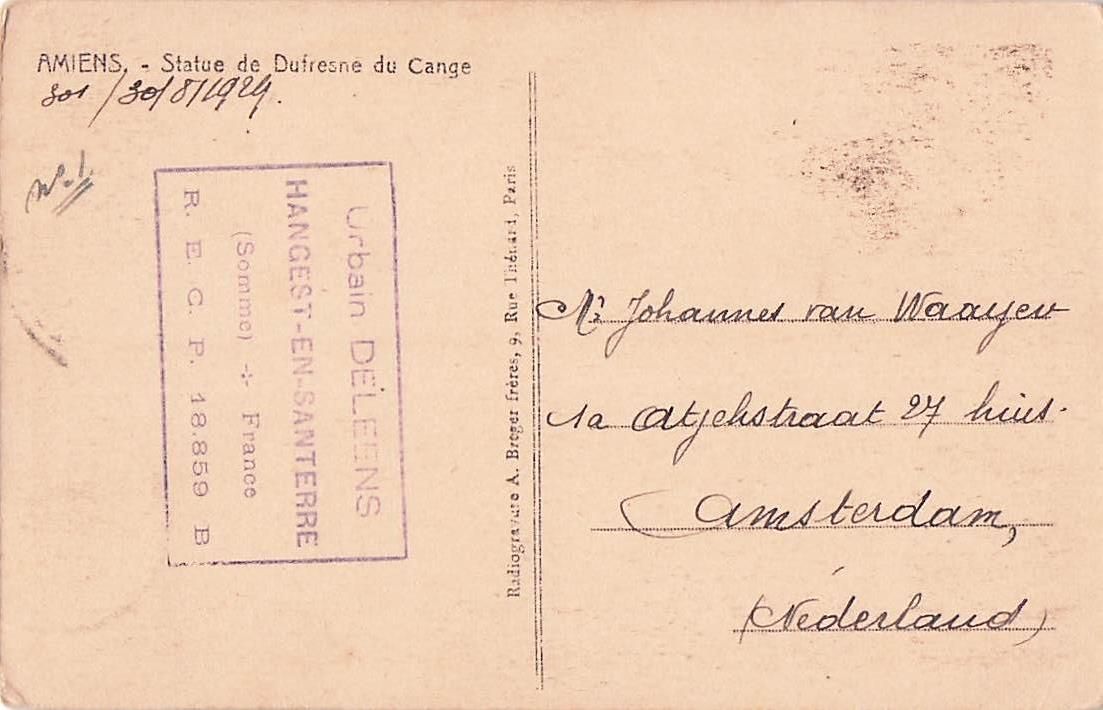 AMIENS. - Statue de Dufresne du Cange
301/30/8/1929.
Nº. 1
Urbain DELEENS
HANGEST-EN-SANTERRE
(Somme) -:- France
R. E. C. P. 18.859 B
Radiogravure A. Breger frères, 9, Rue Thénard, Paris
Mr Johannes van Waayen
1a Atjehstraat 27 huis.
Amsterdam,
(Néderland)